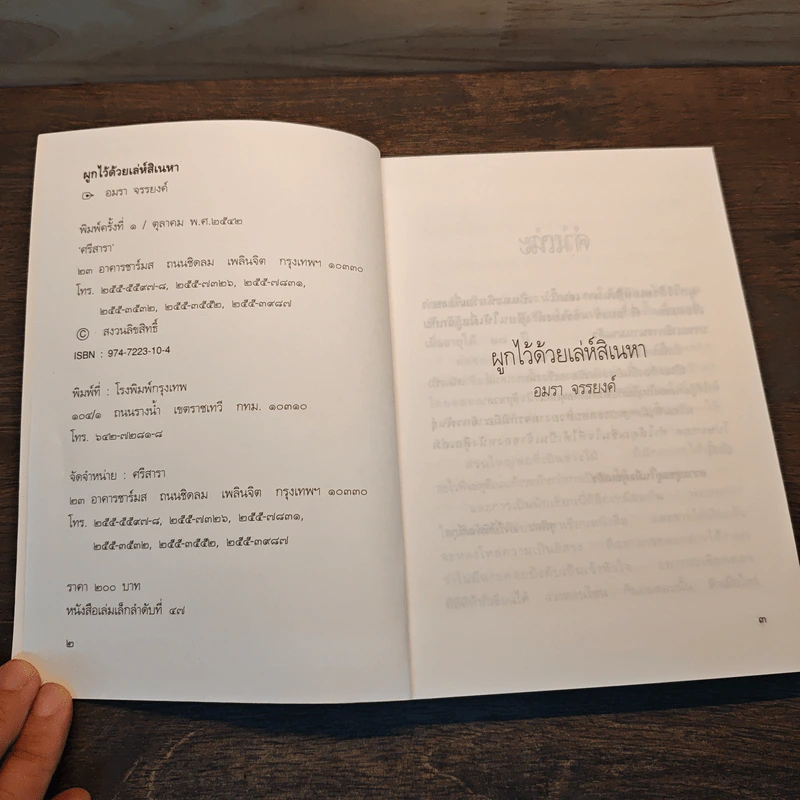 ผูกไว้ด้วยเล่ห์สิเนหา
อมรา จรรยงค์
พิมพ์ครั้งที่ ๑ / ตุลาคม พ.ศ.๒๕๔๒
'ศรีสารา'
๒๓ อาคารชาร์มส ถนนชิดลม เพลินจิต กรุงเทพฯ ๑๐๓๓๐
โทร. ๒๕๕-๕๕๙๗-๘, ๒๕๕-๗๓๒๖, ๒๕๕-๗๘๓๑,
๒๕๕-๓๕๓๒, ๒๕๕-๓๕๕๒, ๒๕๕-๓๙๘๗
© สงวนลิขสิทธิ์
ISBN : 974-7223-10-4
พิมพ์ที่ : โรงพิมพ์กรุงเทพ
๑๐๔/๑ ถนนรางน้ำ เขตราชเทวี กทม. ๑๐๓๑๐
โทร. ๖๔๒-๗๒๘๑-๘
จัดจำหน่าย : ศรีสารา
๒๓ อาคารชาร์มส ถนนชิดลม เพลินจิต กรุงเทพฯ ๑๐๓๓๐
โทร. ๒๕๕-๕๕๙๗-๘, ๒๕๕-๗๓๒๖, ๒๕๕-๗๘๓๑,
๒๕๕-๓๕๓๒, ๒๕๕-๓๕๕๒, ๒๕๕-๓๙๘๗
ราคา ๒๐๐ บาท
หนังสือเล่มเล็กลำดับที่ ๔๗
๒
ผูกไว้ด้วยเล่ห์สิเนหา
อมรา จรรยงค์
๓